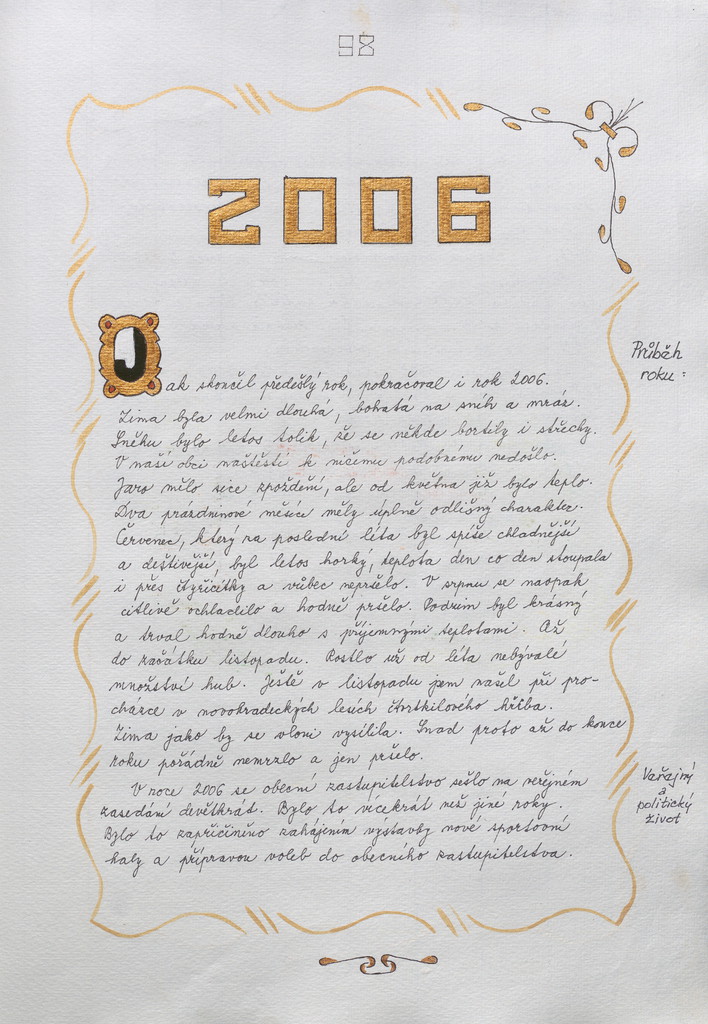 98
2006
Jak skončil předešlý rok, pokračoval i rok 2006.
Průběh
roku:
Zima byla velmi dlouhá, bohatá na sníh a mráz.
Sněhu bylo letos tolik, že se někde bortily i střechy.
V naší obci naštěstí k ničemu podobnému nedošlo.
Jaro mělo sice zpoždění, ale od května již bylo teplo.
Dva prázdninové měsíce měly úplně odlišný charakter.
Červenec, který za poslední léta byl spíše chladnější
a deštivější, byl letos horký, teplota den co den stoupala
i přes čtyřicítky a vůbec nepršelo. V srpnu se naopak
citlivě ochladilo a hodně pršelo. Podzim byl krásný
a trval hodně dlouho s příjemnými teplotami. Až
do začátku listopadu. Rostlo už od léta nebývalé
množství hub. Ještě v listopadu jsem našel při pro-
cházce v novohradeckých lesích čtvrtkilového hřiba.
Zima jako by se vloni vysílila. Snad proto až do konce
roku pořádně nemrzlo a jen pršelo.
V roce 2006 se obecní zastupitelstvo sešlo na veřejném
zasedání devětkrát. Bylo to vícekrát než jiné roky.
Bylo to zapříčiněno zahájením výstavby nové sportovní
haly a přípravou voleb do obecního zastupitelstva.
Veřejný
a
politický
život